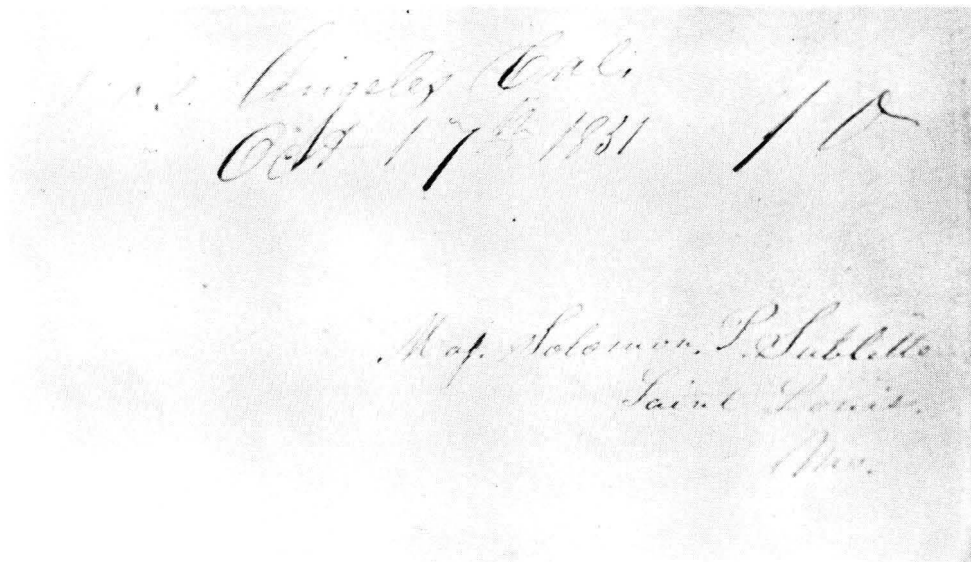 Los Angeles Cali
Oct 17th 1851 10
Maj. Solomon. P. Sublette
Saint Louis.
Mo.